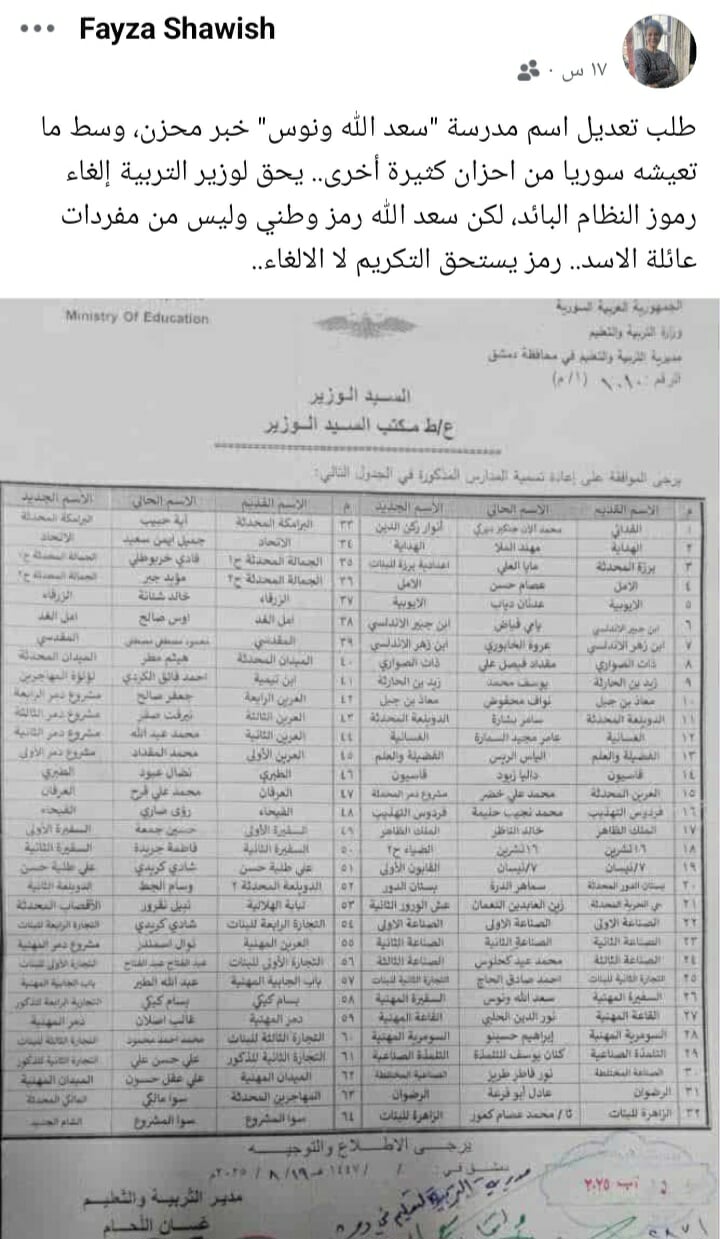 Fayza Shawish
١٧ س
طلب تعديل اسم مدرسة "سعد الله ونوس" خبر محزن، وسط ما
تعيشه سوريا من احزان كثيرة أخرى.. يحق لوزير التربية إلغاء
رموز النظام البائد، لكن سعد الله رمز وطني وليس من مفردات
عائلة الاسد.. رمز يستحق التكريم لا الالغاء..
الجمهورية العربية السورية
Ministry Of Education
وزارة التربية والتعليم
مديرية التربية والتعليم في محافظة دمشق
الرقم: (١/م)
السيد الوزير
ع/ط مكتب السيد الوزير
يرجى الموافقة على إعادة تسمية المدارس المذكورة في الجدول التالي:
م الاسم القديم الاسم الحالي الاسم الجديد م الاسم القديم الاسم الحالي الاسم الجديد
١ محمد أنوار ركن الدين ٣٣ البرامكة المحدثة آية حبيب البرامكة المحدثة
٢ الهداية مهند الملا الهداية ٣٤ الاتحاد جميل ايمن سعيد الاتحاد
٣ برزة المحدثة مايا العلي اعدادية برزة للبنات ٣٥ الجمالة المحدثة ح١ فادي خربوطلي الجمالة المحدثة ح١
٤ الامل عصام حسن الامل ٣٦ الجمالة المحدثة ح٢ مؤيد جبر الجمالة المحدثة ح٢
٥ الايوبية عدنان دياب الايوبية ٣٧ الزرقاء خالد شتانة الزرقاء
٦ ابن جبير الاندلسي رامي فياض ابن جبير الاندلسي ٣٨ امل الغد اوس صالح امل الغد
٧ ابن زهر الاندلسي عروة الخابوري ابن زهر الاندلسي ٣٩ المقدسي المقدسي
٨ ذات الصواري مقداد فيصل علي ذات الصواري ٤٠ الميدان المحدثة هيثم مطر الميدان المحدثة
٩ زيد بن الحارثة يوسف محمد زيد بن الحارثة ٤١ ابن تيمية احمد فائق الكردي لؤلؤة المهاجرين
١٠ معاذ بن جبل نواف محفوض معاذ بن جبل ٤٢ العرين الرابعة جعفر صالح مشروع دمر الرابعة
١١ الدويلعة المحدثة سامر بشارة الدويلعة المحدثة ٤٣ العرين الثالثة ميرفت صقر مشروع دمر الثالثة
١٢ الغسانية عامر مجيد السمارة الغسانية ٤٤ العرين الثانية محمد عبد الله مشروع دمر الثانية
١٣ الفضيلة والعلم الياس الريس الفضيلة والعلم ٤٥ العرين الأولى محمد المقداد مشروع دمر الأولى
١٤ قاسيون داليا زيود قاسيون ٤٦ الطبري نضال عبود الطبري
١٥ العرين المحدثة محمد علي خضر مشروع دمر المحدثة ٤٧ العرفان محمد علي فرج العرفان
١٦ فردوس التهذيب محمد نجيب حليمة فردوس التهذيب ٤٨ الفيحاء رؤى صاري الفيحاء
١٧ الملك الظاهر خالد الناظر الملك الظاهر ٤٩ السفيرة الأولى حسين جمعة السفيرة الأولى
١٨ ١٦ تشرين ١٦ تشرين الضياء ح٢ ٥٠ السفيرة الثانية فاطمة جريدة السفيرة الثانية
١٩ ٧/نيسان ٧/نيسان القانون الأولى ٥١ علي طلبة حسن شادي كريدي علي طلبة حسن
٢٠ بستان الدور المحدثة سماهر الدرة بستان الدور ٥٢ الدويلعة المحدثة ٢ وسام الجط الدويلعة الثانية
٢١ حي الحرية المحدثة زين العابدين النعمان عش الورور الثانية ٥٣ لبابة الهلالية نبيل نقرور الأقصاب المحدثة
٢٢ الصناعة الاولى الصناعة الاولى الصناعة الاولى ٥٤ التجارة الرابعة للبنات شادي كريدي التجارة الرابعة للبنات
٢٣ الصناعة الثانية الصناعة الثانية الصناعة الثانية ٥٥ العرين المهنية نوال اسمندر مشروع دمر المهنية
٢٤ الصناعة الثالثة محمد عبدو كحلوس الصناعة الثالثة ٥٦ التجارة الأولى للبنات عبد الفتاح عبد الفتاح التجارة الأولى للبنات
٢٥ التجارة الثانية للبنات احمد صادق الحاج التجارة الثانية للبنات ٥٧ باب الجابية المهنية عبد الله الطير باب الجابية المهنية
٢٦ السفيرة المهنية سعد الله ونوس السفيرة المهنية ٥٨ بسام كيكي بسام كيكي التجارية الرابعة للذكور
٢٧ القاعة المهنية نور الدين الحلبي القاعة المهنية ٥٩ دمر المهنية غالب اصلان دمر المهنية
٢٨ السومرية المهنية إبراهيم حسينو السومرية المهنية ٦٠ التجارة الثالثة للبنات محمد احمد محمود التجارة الثالثة للبنات
٢٩ التلمذة الصناعية كنان يوسف للتلمذة التلمذة الصناعية ٦١ التجارة الثانية للذكور علي حسن علي التجارة الثانية للذكور
٣٠ الصناعة المختلطة نور الصناعية المختلطة ٦٢ الميدان المهنية علي عقل حسون الميدان المهنية
٣١ الرضوان عادل أبو قرعة الرضوان ٦٣ المهاجرين المحدثة سوا مالكي المالكي المحدثة
٣٢ الزاهرة للبنات محمد عصام كمور الزاهرة للبنات ٦٤ سوا المشروع سوا المشروع الشام الجديد
يرجى الاطلاع والتوجيه
دمشق في: / / ١٤٤٧ هـ ١٩/ ٨ / ٢٠٢٥م
مدير التربية والتعليم
غسان اللحام
آب ٢٠٢٥